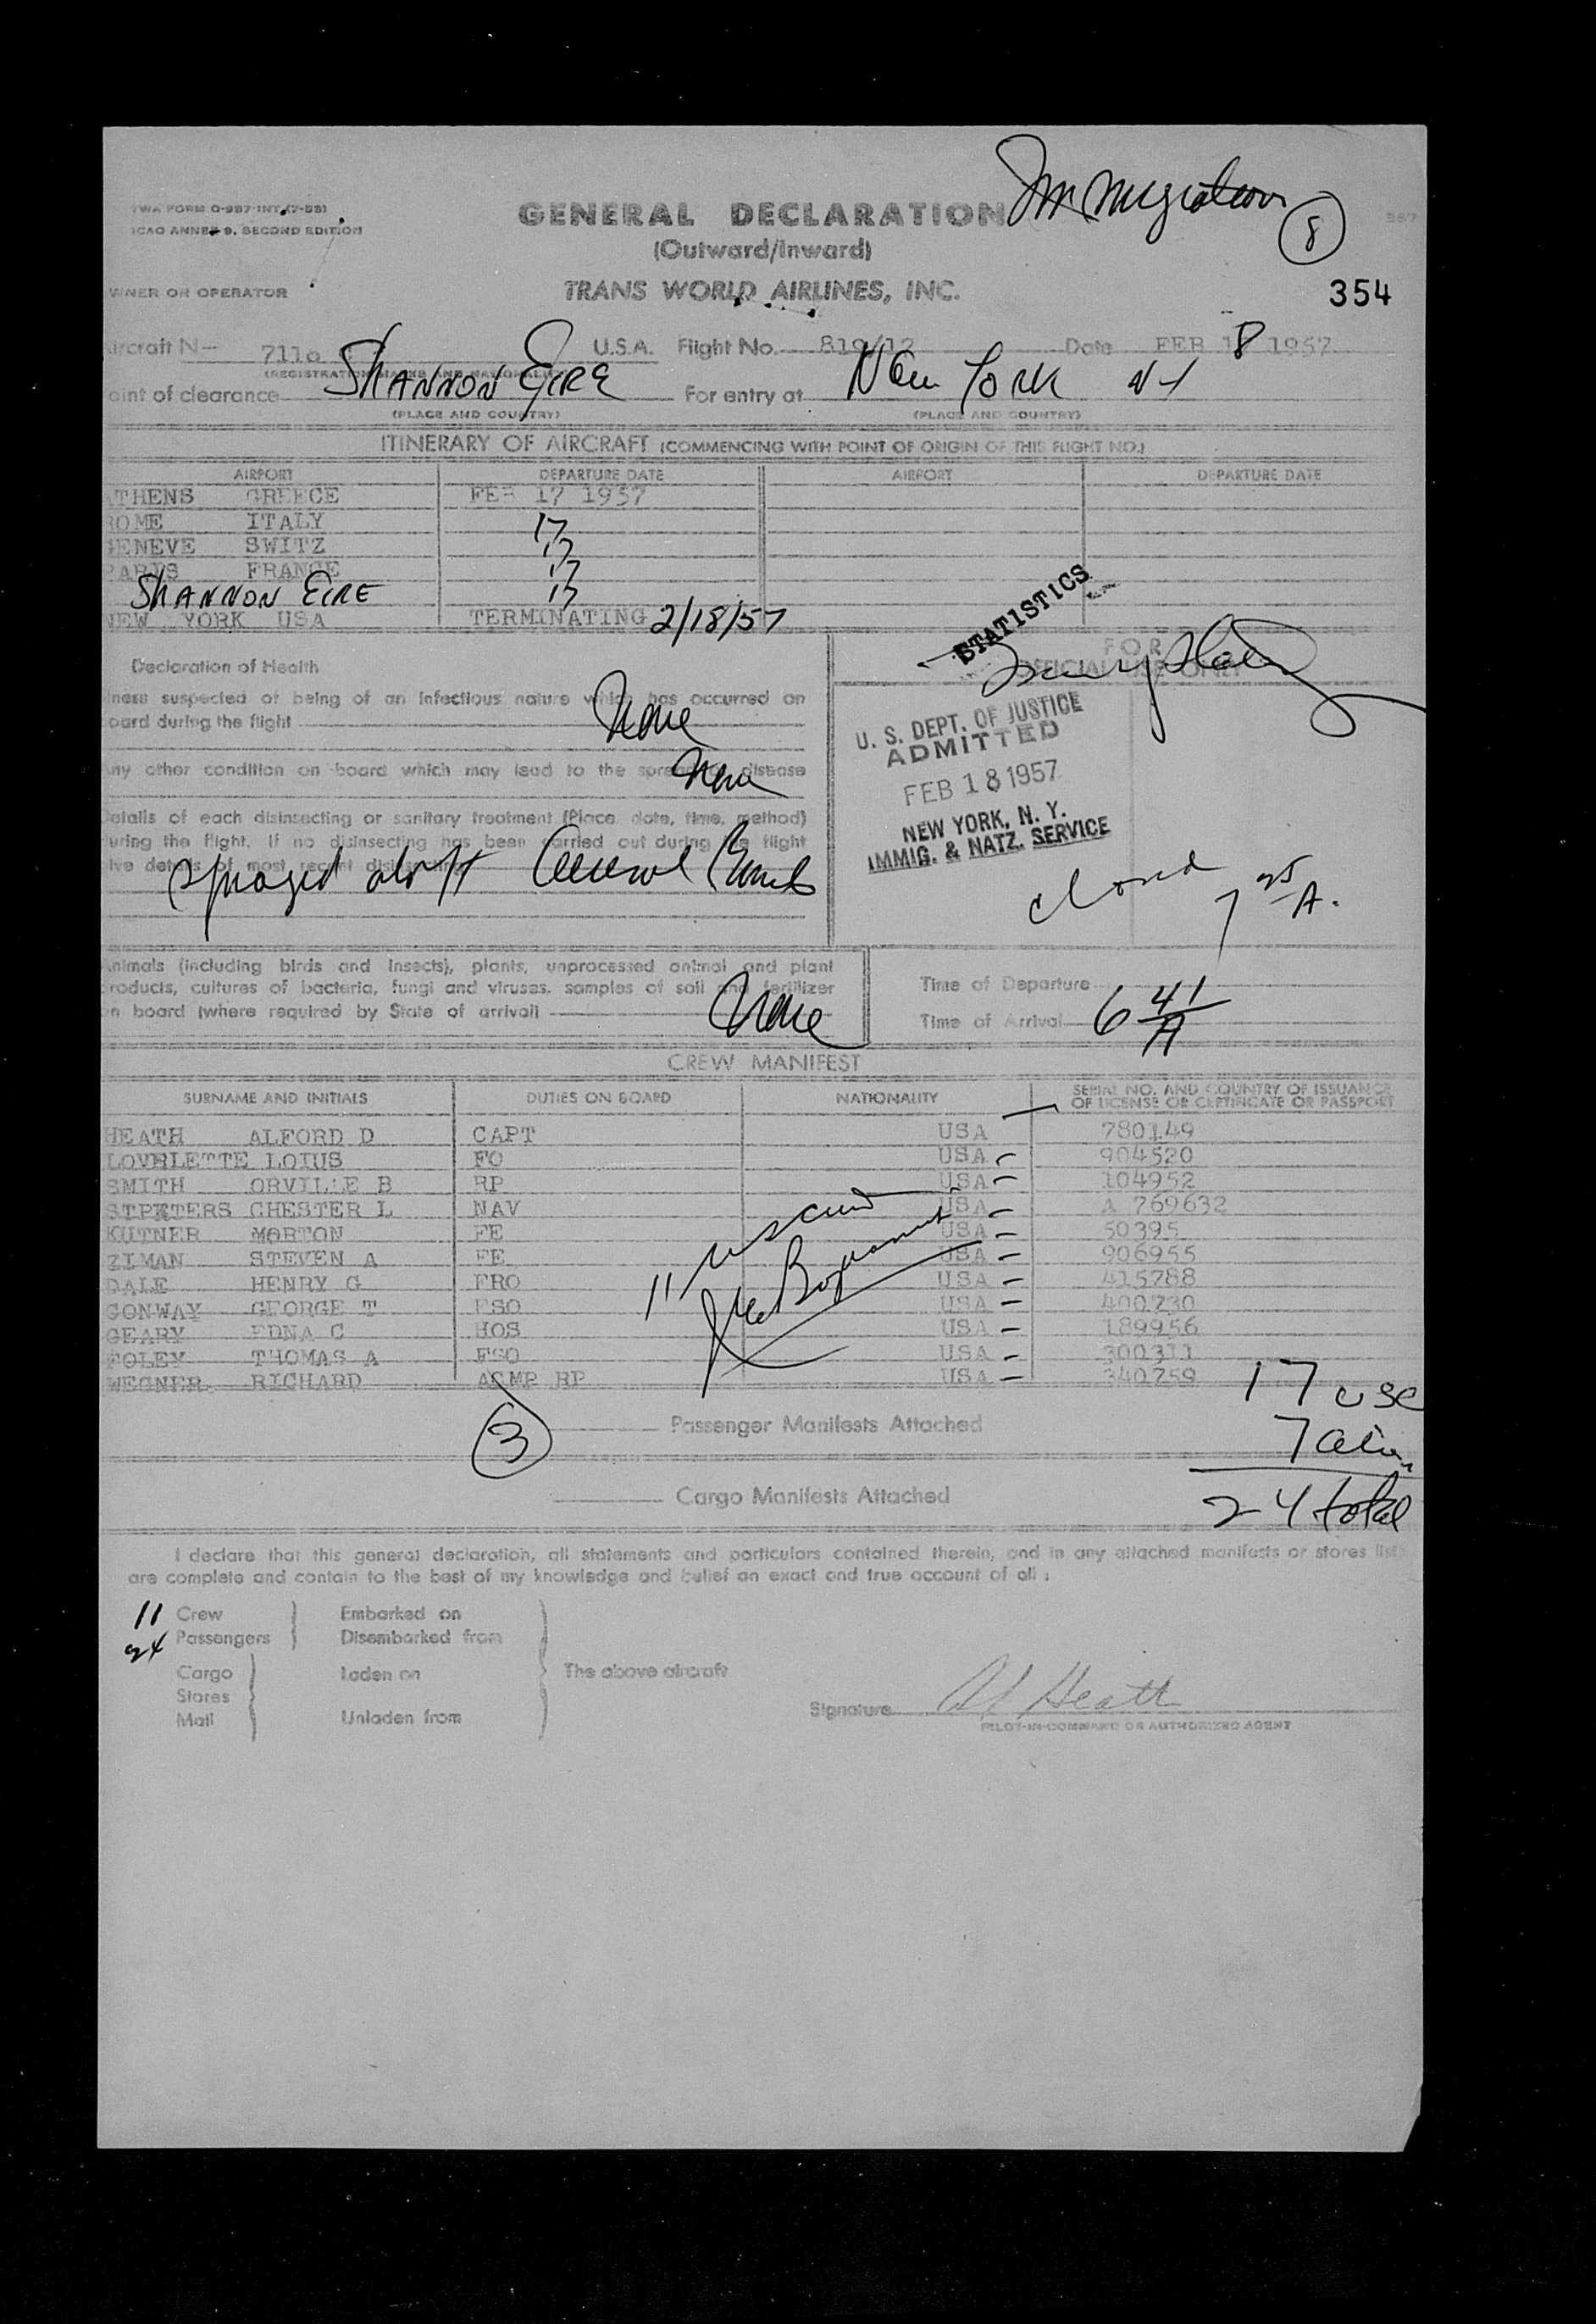 Immigration
TWA FORM O-987 INT. (7-55)
ICAO ANNEX 9, SECOND EDITION
GENERAL DECLARATION
(Outward/Inward)
8
WNER OR OPERATOR
TRANS WORLD AIRLINES, INC.
354
ircraft N— U.S.A. Flight No. 819/12 Date FEB 18 1957
(REGISTRATION MARKS AND NATIONALITY)
oint of clearance SHANNON EIRE For entry at New York NY
(PLACE AND COUNTRY) (PLACE AND COUNTRY)
ITINERARY OF AIRCRAFT (COMMENCING WITH POINT OF ORIGIN OF THIS FLIGHT NO.)
AIRPORT DEPARTURE DATE AIRPORT DEPARTURE DATE
THENS GREECE FEB 17 1957
OME ITALY 17
ENEVE SWITZ 17
PARIS FRANCE 17
SHANNON EIRE 17
NEW YORK USA TERMINATING 2/18/57
STATISTICS
FOR
OFFICIAL USE ONLY
Declaration of Health
lness suspected of being of an infectious nature which has occurred on
oard during the flight None
ny other condition on board which may lead to the spread of disease
None
etails of each disinsecting or sanitary treatment (Place, date, time, method)
uring the flight. If no disinsecting has been carried out during the flight
ive details of most recent disinsecting
Sprayed aloft Aerosol Bomb
U. S. DEPT. OF JUSTICE
ADMITTED
FEB 18 1957
NEW YORK, N. Y.
IMMIG. & NATZ. SERVICE
closed 7 25 A.
nimals (including birds and insects), plants, unprocessed animal and plant
roducts, cultures of bacteria, fungi and viruses, samples of soil and fertilizer
n board (where required by State of arrival) None
Time of Departure
Time of Arrival 6 41 A
CREW MANIFEST
SURNAME AND INITIALS DUTIES ON BOARD NATIONALITY SERIAL NO. AND COUNTRY OF ISSUANCE
OF LICENSE OR CERTIFICATE OR PASSPORT
HEATH ALFORD D CAPT USA 780149
LOVELETTE LOIUS FO USA 904520
SMITH ORVILLE B RP USA 104952
STPETERS CHESTER L NAV USA A 769632
KUTNER MORTON FE USA 50395
ZIMAN STEVEN A FE USA 906955
DALE HENRY G FRO USA 415788
CONWAY GEORGE T FSO USA 400230
GEARY EDNA C HOS USA 189956
FOLEY THOMAS A FSO USA 300311
WEGNER RICHARD ACMP RP USA 340759
11
17 usc
3 Passenger Manifests Attached 7 alien
Cargo Manifests Attached 24 total
I declare that this general declaration, all statements and particulars contained therein, and in any attached manifests or stores list
are complete and contain to the best of my knowledge and belief an exact and true account of all :
11 Crew Embarked on
24 Passengers Disembarked from
Cargo Laden on The above aircraft
Stores
Mail Unladen from
Signature Heath
PILOT-IN-COMMAND OR AUTHORIZED AGENT